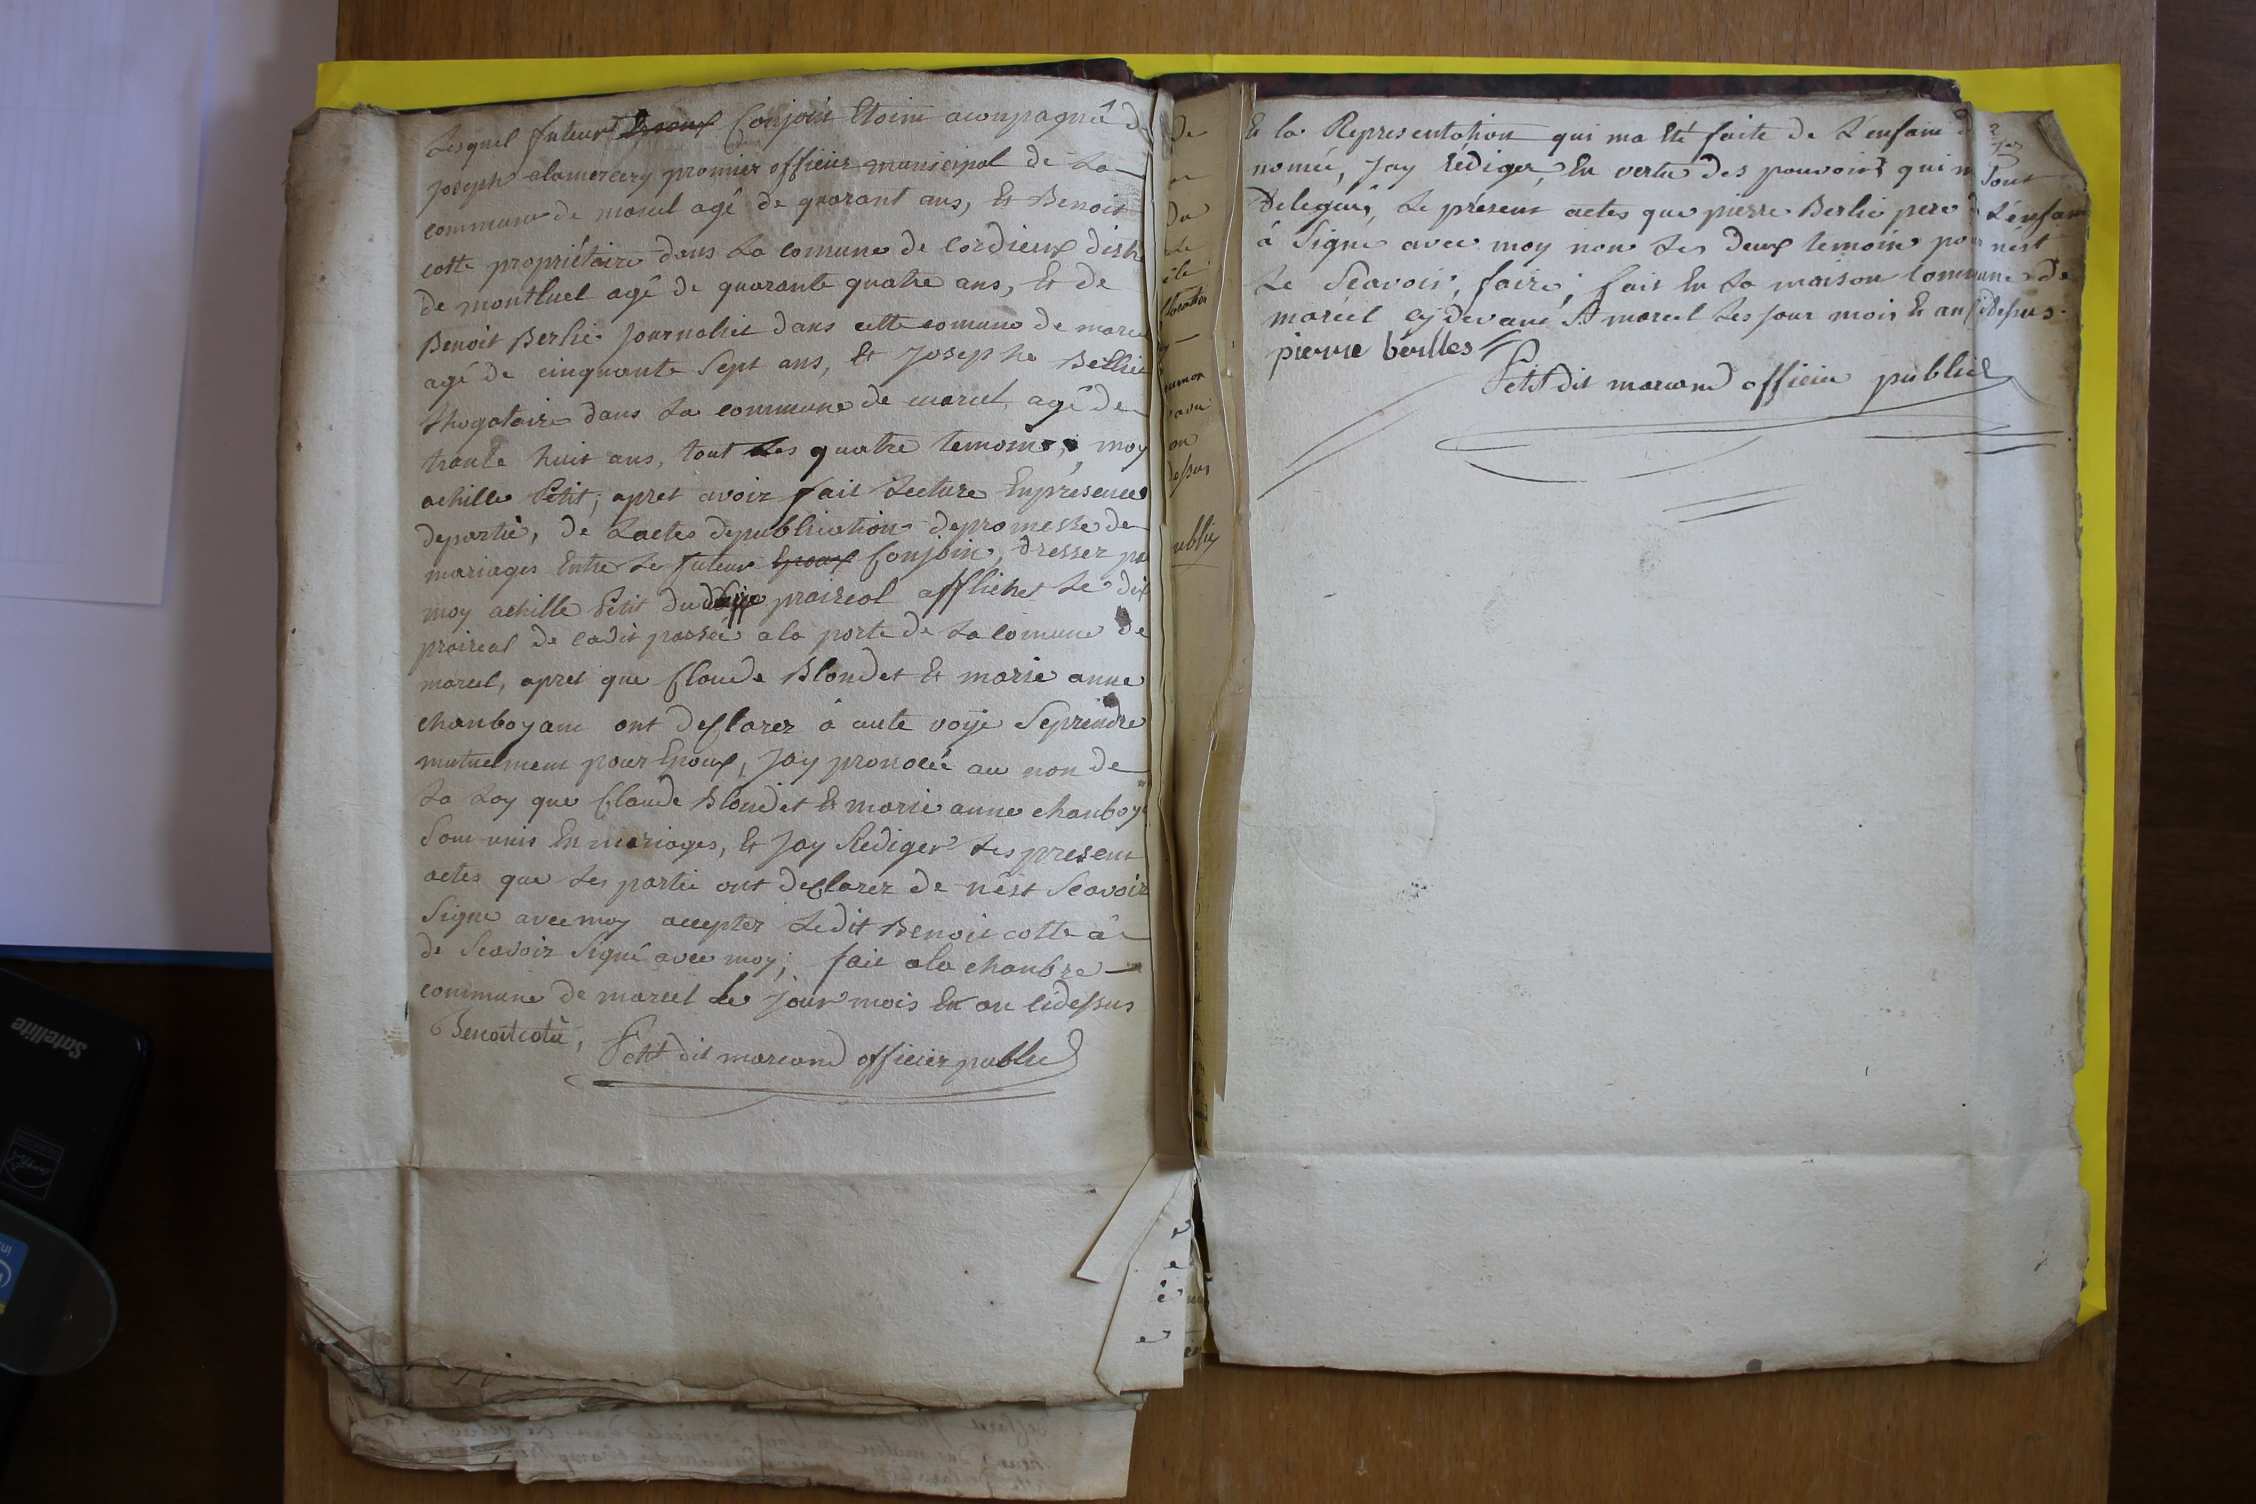 Lesquel futeur Conjoin Etoint acompagné d
Joseph alamercery promier officier municipal de La
commune de marcel agé de quarant ans, Et Benoit
cotte propriétaire dans La comune de Cordieux distr
de montluel agé de quarante quatre ans, Et de
Benoit Berlié Journalié dans cette comune de marcel
agé de cinquante Sept ans, Et Josephe Berlié
dans La commune de marcel agé de
trante huit ans, tout Les quatre temoins, moy
achille Petit; apret avoir fait Lecture Enpresence
departie, de Lactes depublication depromesse de
mariages Entre Le futeur Epoux Conjoin, dresser par
moy achille Petit du prairéal affficher Le dix
prairéal de ladit passée ala porte de La comune de
marcel, apret que Claude Blondet Et marie anne
chanboyant ont desclarez à aute voye Seprendre
mutuelment pour Epoux, Jay pronocé au non de
La Loy que Claude Blondet Et marie anne chanboy
Sont unis En mariages, Et Jay Rediger Les present
actes que Les partie ont desclarez de nêst Scavoir
Signe avec moy accepter Ledit Benoit cotte à
de Scavoir Signé avec moy; fait ala chanbre
commune de marcel Le Jour mois En an cidessus
Benoitcote, Petit dit marcand officier public
De
Du
dessus
ublie
Satellite
Et la Representation qui ma Eté faite de L'enfant d
nomée, Jay rédiger, En vertu des pouvoirs qui m Sont
Delegués, Le présent actes que pierre Berlié pere d L'enfant
à Signé avec moy non Les Deux temoin pour nêst
Le Scavoir, faire; fait En La maison Commune de
marcel cy devant St marcel Les jour mois Et an cidessus.
pierre berlles
Petit dit marcand officier public